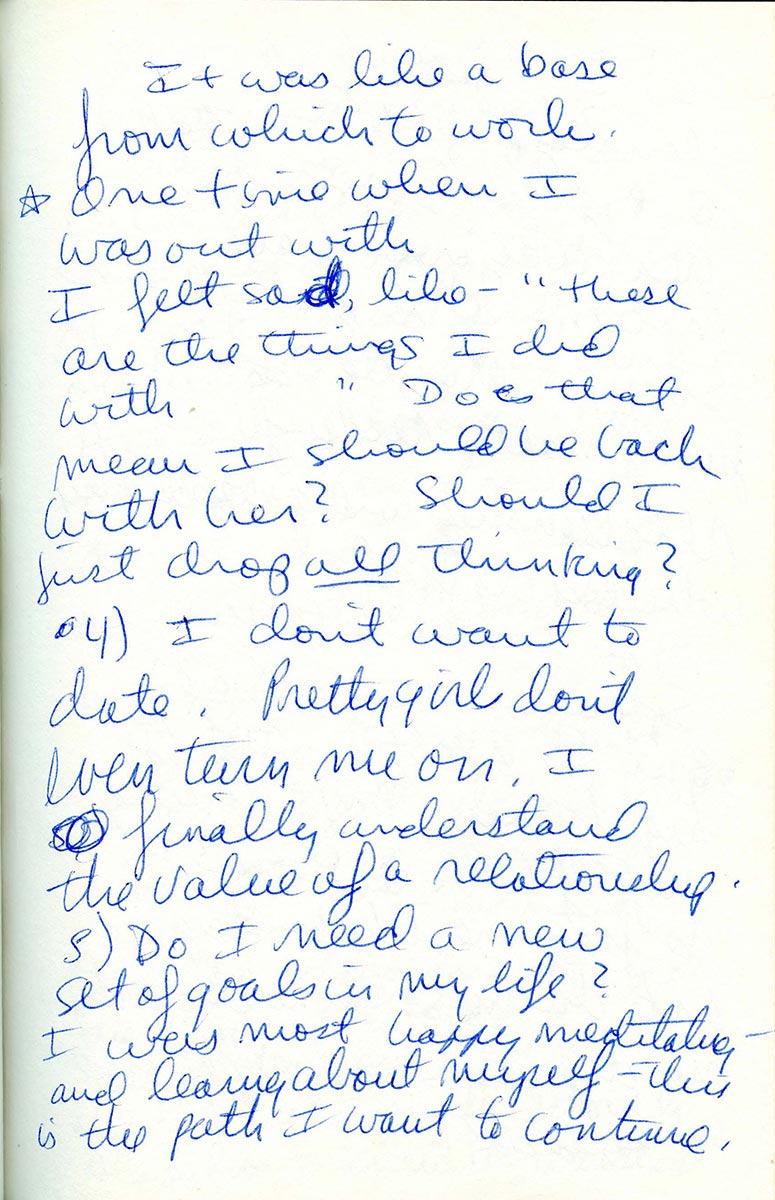 It was like a base
from which to work.
☆ One time when I
was out with
I felt sad, like - "these
are the things I did
with " Does that
mean I should be back
with her? Should I
just drop all thinking?
4) I don't want to
date. Pretty girl don't
even turn me on. I
finally understand
the value of a relationship.
5) Do I need a new
set of goals in my life?
I was most happy meditating -
and learning about myself - this
is the path I want to continue.